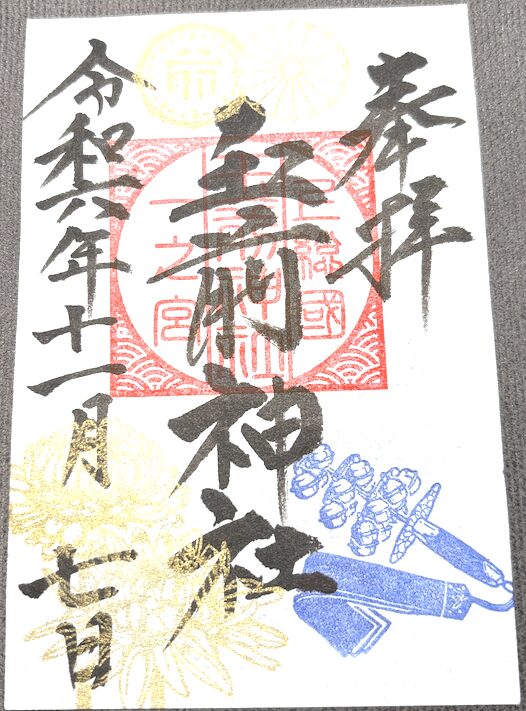 奉拝
上総國
玉前神社
一之宮
令和六年十一月七日